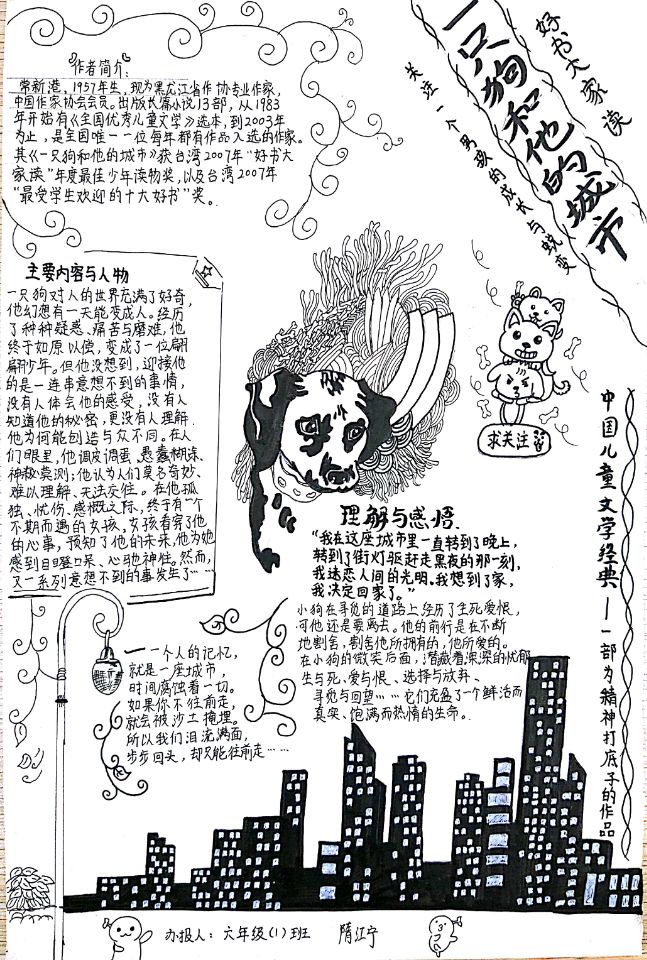 一只狗和他的城市
好书大家读
关注一个男孩的成长与蜕变
作者简介:
常新港，1957年生，现为黑龙江省作协专业作家，
中国作家协会会员。出版长篇小说13部，从1983
年开始有《全国优秀儿童文学》选本，到2003年
为止，是全国唯一一位每年都有作品入选的作家。
其《一只狗和他的城市》获台湾2007年“好书大
家读”年度最佳少年读物奖，以及台湾2007年
“最受学生欢迎的十大好书”奖。
主要内容与人物
一只狗对人的世界充满了好奇，
他幻想有一天能变成人。经历
了种种疑惑、痛苦与磨难，他
终于如原以偿，变成了一位翩
翩少年。但他没想到，迎接他
的是一连串意想不到的事情，
没有人体会他的感受，没有人
知道他的秘密，更没有人理解
他为何能创造与众不同。在人
们眼里，他调皮调蛋、愚蠢糊涂、
神秘莫测；他认为人们莫名奇妙、
难以理解、无法交往。在他孤
独、忧伤、感慨之际，终于有一个
不期而遇的女孩，女孩看穿了他
的心事，预知了他的未来，他为她
感到目瞪口呆、心驰神往。然而，
又一系列意想不到的事发生了……
求关注
中国儿童文学经典——一部为精神打底子的作品
理解与感悟
“我在这座城市里一直转到了晚上，
转到了街灯驱赶走黑夜的那一刻，
我迷恋人间的光明。我想到了家，
我决定回家了。”
小狗在寻觅的道路上经历了生死爱恨，
可他还是要离去。他的前行是在不断
地割舍，割舍他所拥有的，他所爱的。
在小狗的微笑后面，潜藏着深深的忧郁
生与死、爱与恨、选择与放弃、
寻觅与回望……它们充盈了一个鲜活而
真实、饱满而热情的生命。
一个人的记忆，
就是一座城市，
时间腐蚀着一切。
如果你不往前走，
就会被沙土掩埋。
所以我们泪流满面，
步步回头，却只能往前走……
办报人：六年级(1)班 隋江宁